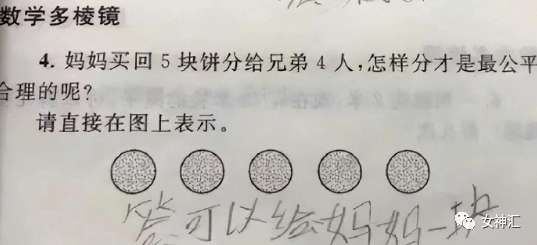 数学多棱镜
4. 妈妈买回 5 块饼分给兄弟 4 人,怎样分才是最公平
合理的呢?
请直接在图上表示。
答可以给妈妈一块
女神汇